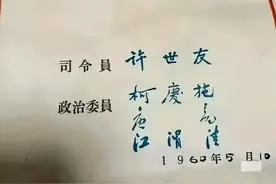 司令員 许世友
政治委員 柯慶施
唐亮
江渭清
1960年5月10